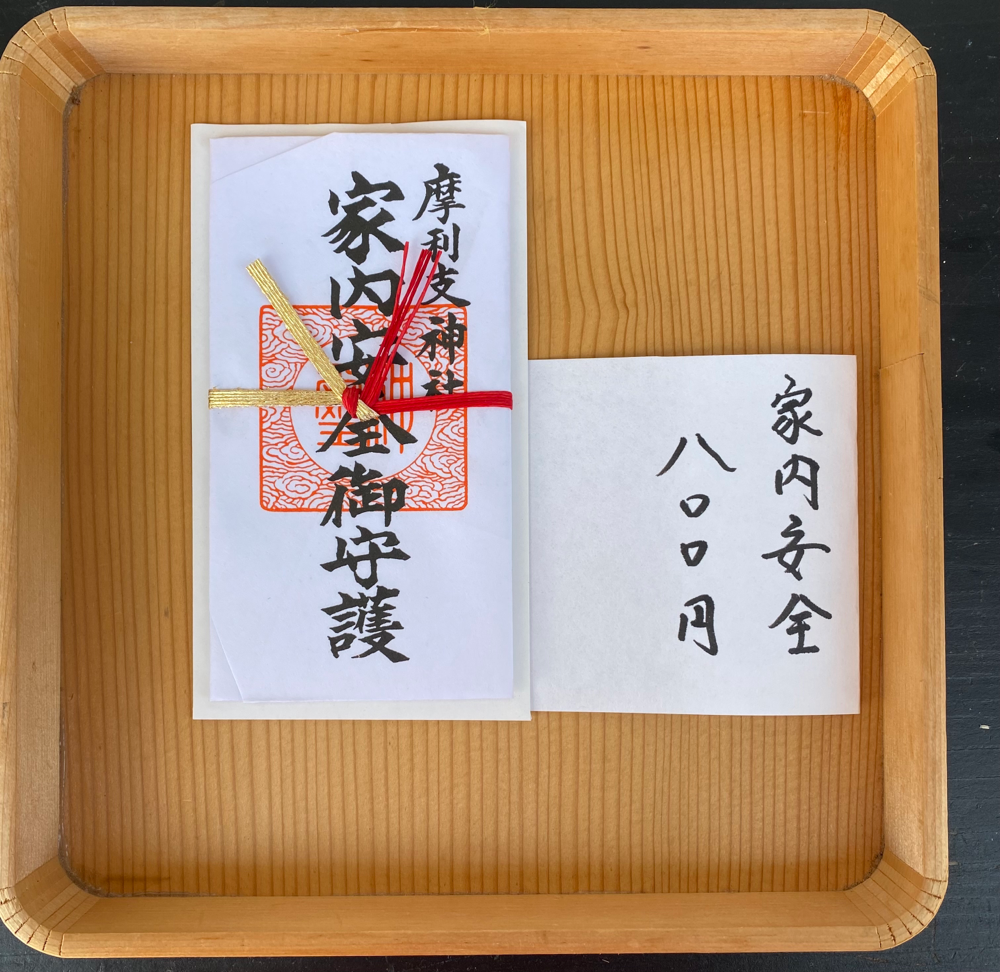 家内安全
八〇〇円
摩利支神社
家内安全御守護